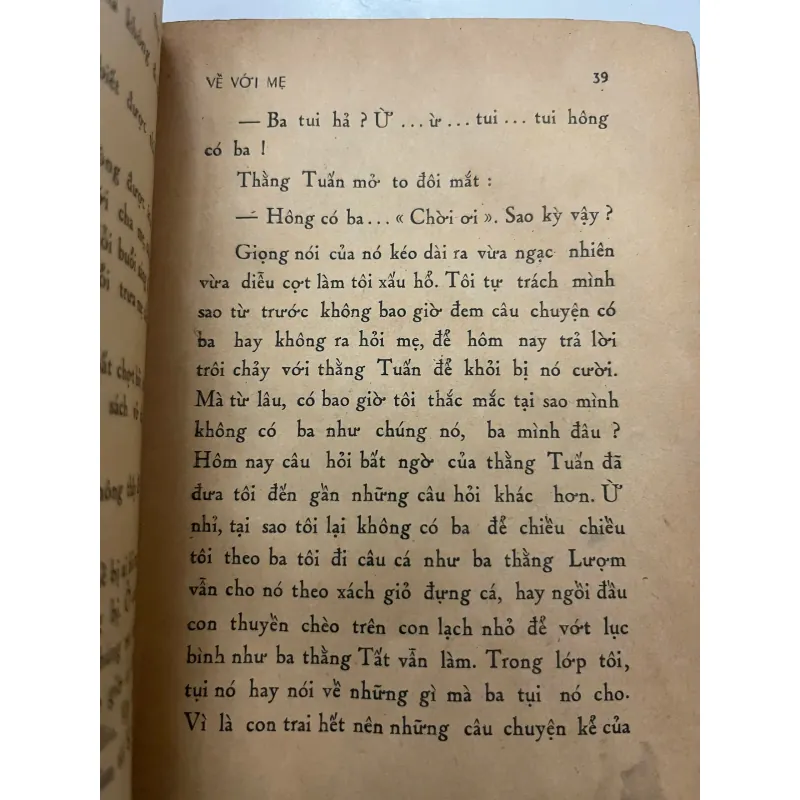 VỀ VỚI MẸ 39
— Ba tui hả ? Ừ ...ừ ... tui ... tui hông
có ba !
Thằng Tuấn mở to đôi mắt :
— Hông có ba... « Chời ơi ». Sao kỳ vậy ?
Giọng nói của nó kéo dài ra vừa ngạc nhiên
vừa diễu cợt làm tôi xấu hổ. Tôi tự trách mình
sao từ trước không bao giờ đem câu chuyện có
ba hay không ra hỏi mẹ, để hôm nay trả lời
trôi chảy với thằng Tuấn để khỏi bị nó cười.
Mà từ lâu, có bao giờ tôi thắc mắc tại sao mình
không có ba như chúng nó, ba mình đâu ?
Hôm nay câu hỏi bất ngờ của thằng Tuấn đã
đưa tôi đến gần những câu hỏi khác hơn. Ừ
nhỉ, tại sao tôi lại không có ba để chiều chiều
tôi theo ba tôi đi câu cá như ba thằng Lượm
vẫn cho nó theo xách giỏ đựng cá, hay ngồi đầu
con thuyền chèo trên con lạch nhỏ để vớt lục
bình như ba thằng Tất vẫn làm. Trong lớp tôi,
tụi nó hay nói về những gì mà ba tụi nó cho.
Vì là con trai hết nên những câu chuyện kể của